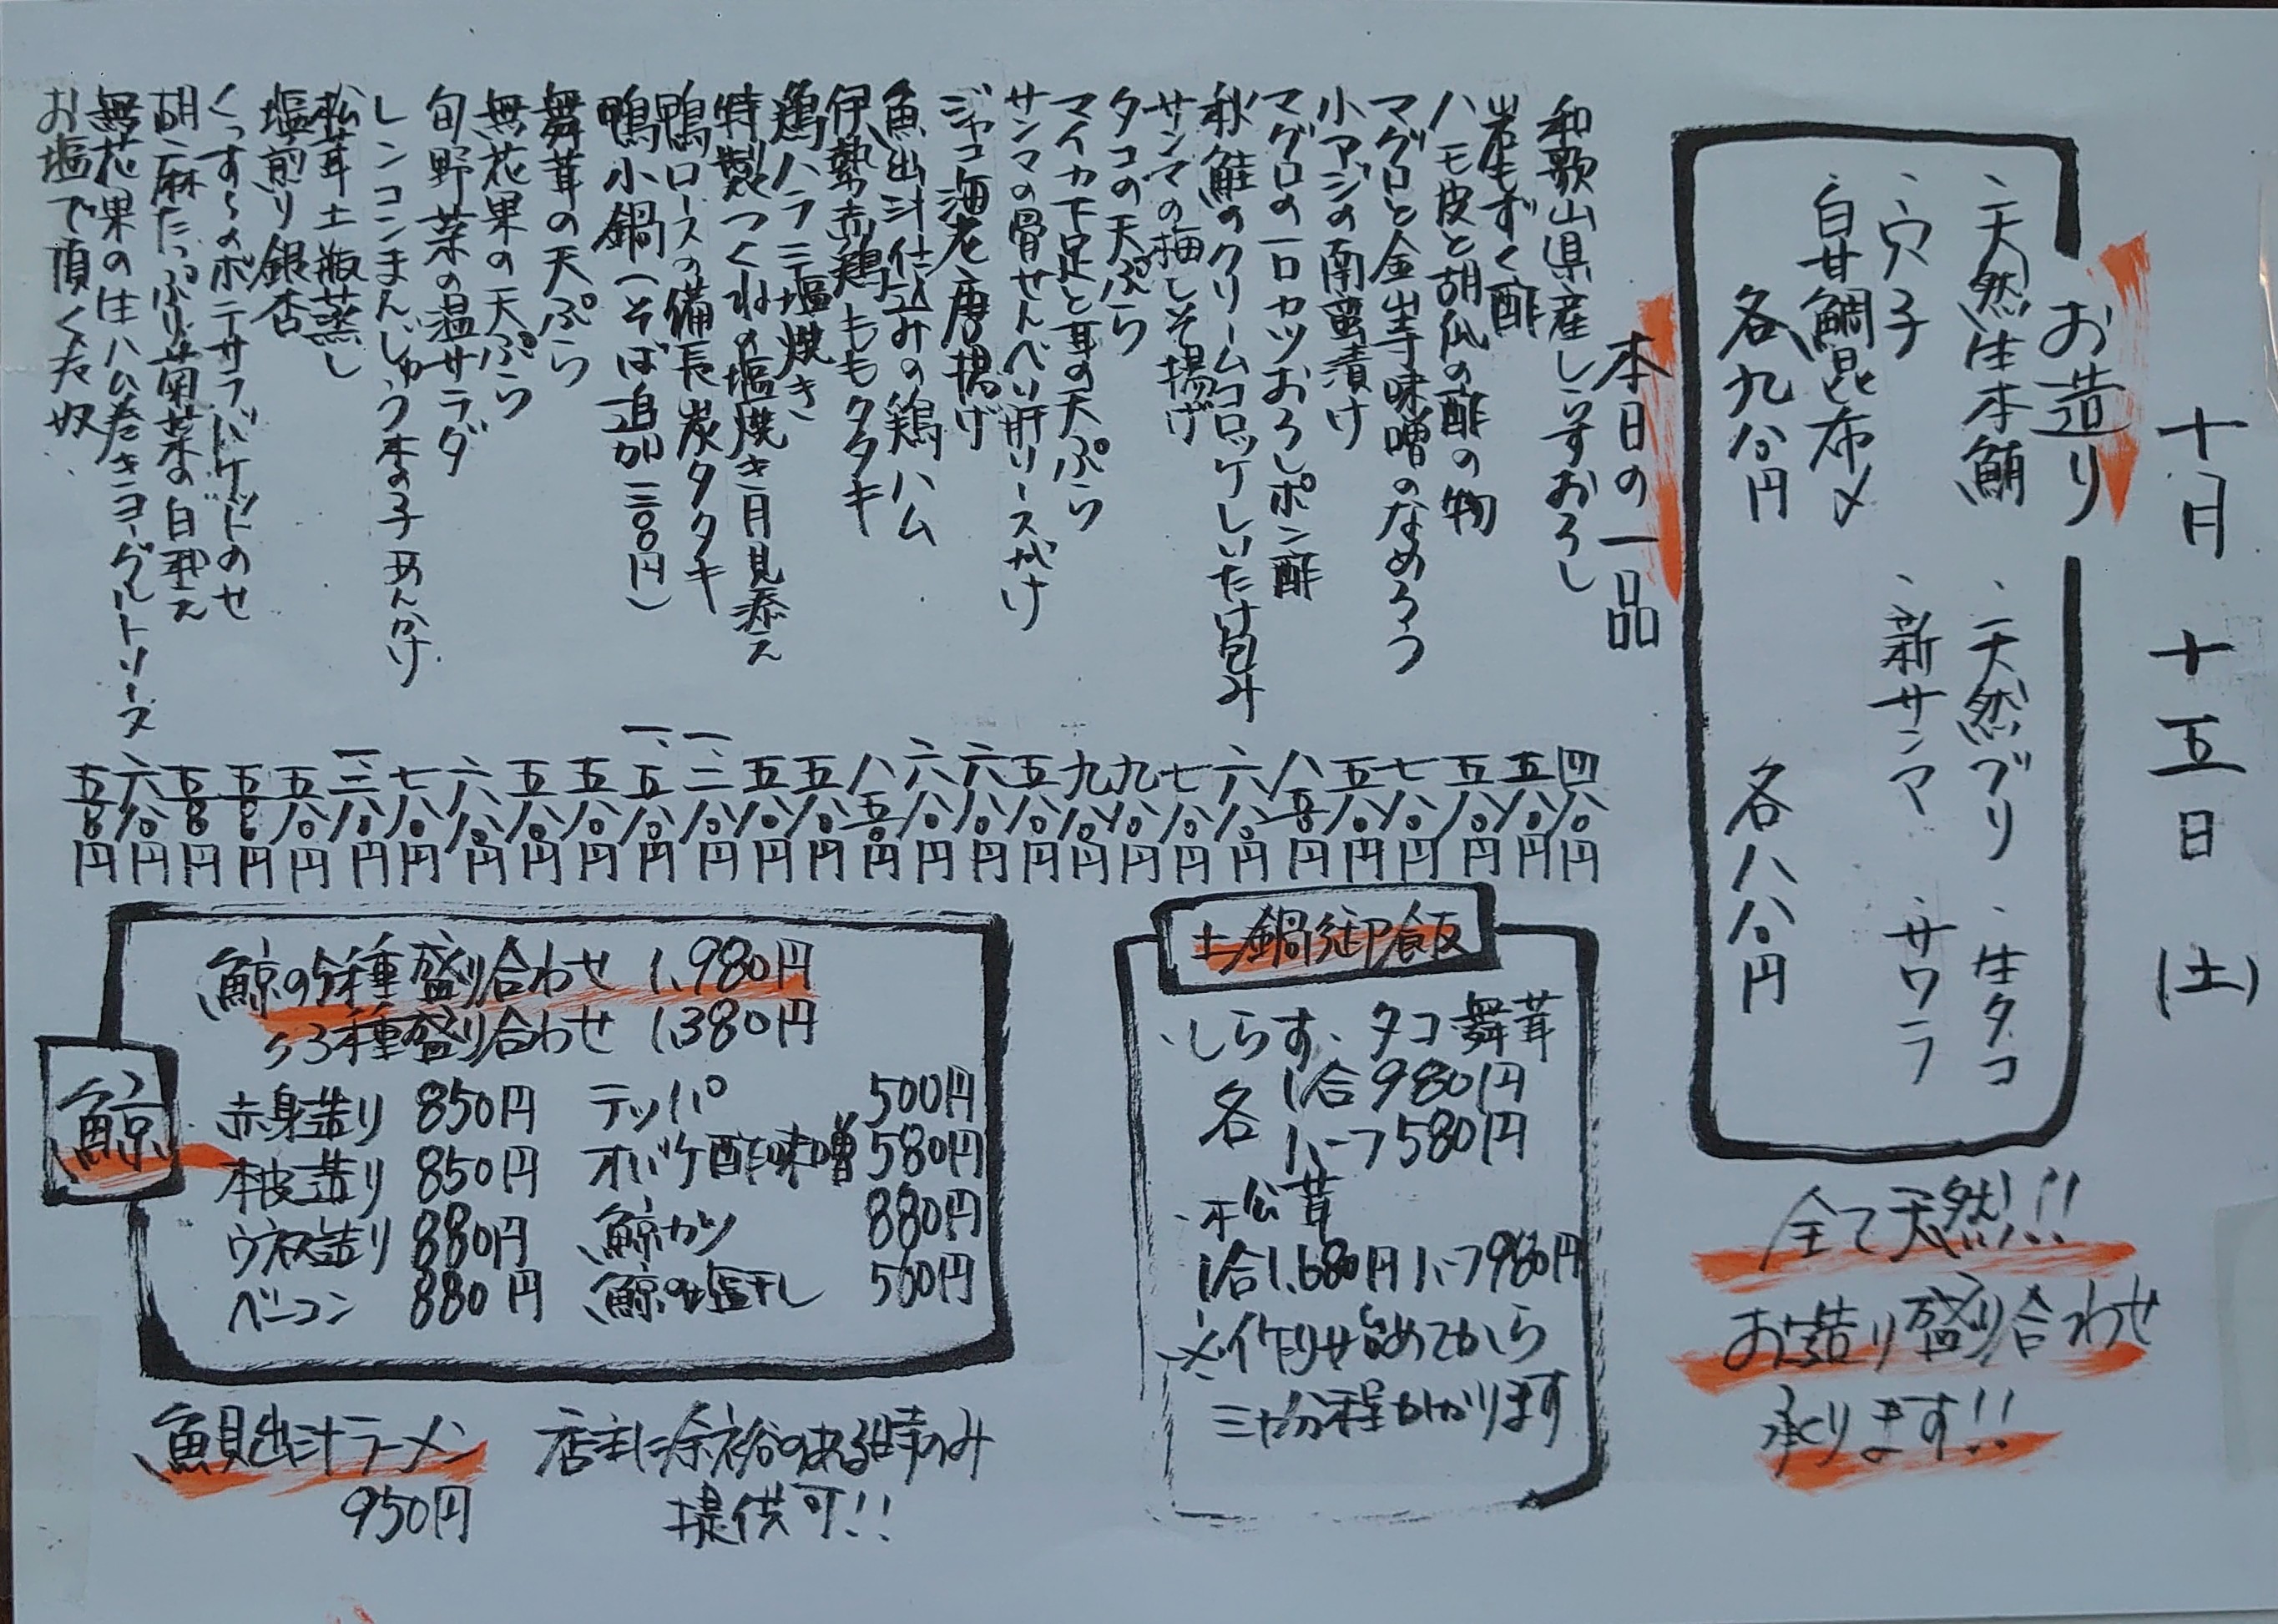 十月十五日(土)
お造り
・天然生本鮪 ・天然ブリ ・生タコ
・穴子 ・新サンマ ・サワラ
・白甘鯛昆布〆
各九八〇円 各八八〇円
全て天然!!
お造り盛り合わせ
承ります!!
本日の一品
和歌山県産しらすおろし 四八〇円
岩もずく酢 五八〇円
ハモ皮と胡瓜の酢の物 五八〇円
マグロと金山寺味噌のなめろう 七八〇円
小アジの南蛮漬け 五八〇円
マグロの一口カツおろしポン酢 八五〇円
秋鮭のクリームコロッケしいたけ包み 六八〇円
サンマの梅しそ揚げ 七八〇円
タコの天ぷら 九八〇円
マイカ下足と耳の天ぷら 九八〇円
サンマの骨せんべい肝ソースがけ 五八〇円
ジャコ海老唐揚げ 六八〇円
魚出汁仕込みの鶏ハム 六八〇円
伊勢赤鶏ももタタキ 八五〇円
鶏ハラミ塩焼き 五八〇円
特製つくねの塩焼き月見添え 五八〇円
鴨ロースの備長炭タタキ 一、三八〇円
鴨小鍋(そば追加三〇〇円) 一、五八〇円
舞茸の天ぷら 五八〇円
無花果の天ぷら 五八〇円
旬野菜の温サラダ 六八〇円
レンコンまんじゅう木の子あんかけ 七八〇円
松茸土瓶蒸し 一三八〇円
塩煎り銀杏 五八〇円
くっすらのポテサラバケットのせ 五五〇円
胡麻たっぷり菊菜の白和え 五五〇円
無花果の生ハム巻きヨーグルトソース 六八〇円
お塩で頂く冷奴 五五〇円
土鍋御飯
・しらす・タコ・舞茸
各 1合980円
ハーフ580円
・松茸
1合1,680円ハーフ980円
※作り始めてから
三十分程かかります
鯨
鯨の5種盛り合わせ 1,980円
〃3種盛り合わせ 1,380円
赤身造り 850円 テッパ 500円
本皮造り 850円 オバケ酢味噌 580円
ウネス造り 880円 鯨カツ 880円
ベーコン 880円 鯨の塩干し 500円
魚貝出汁ラーメン
950円
店主に余裕のある時のみ
提供可!!